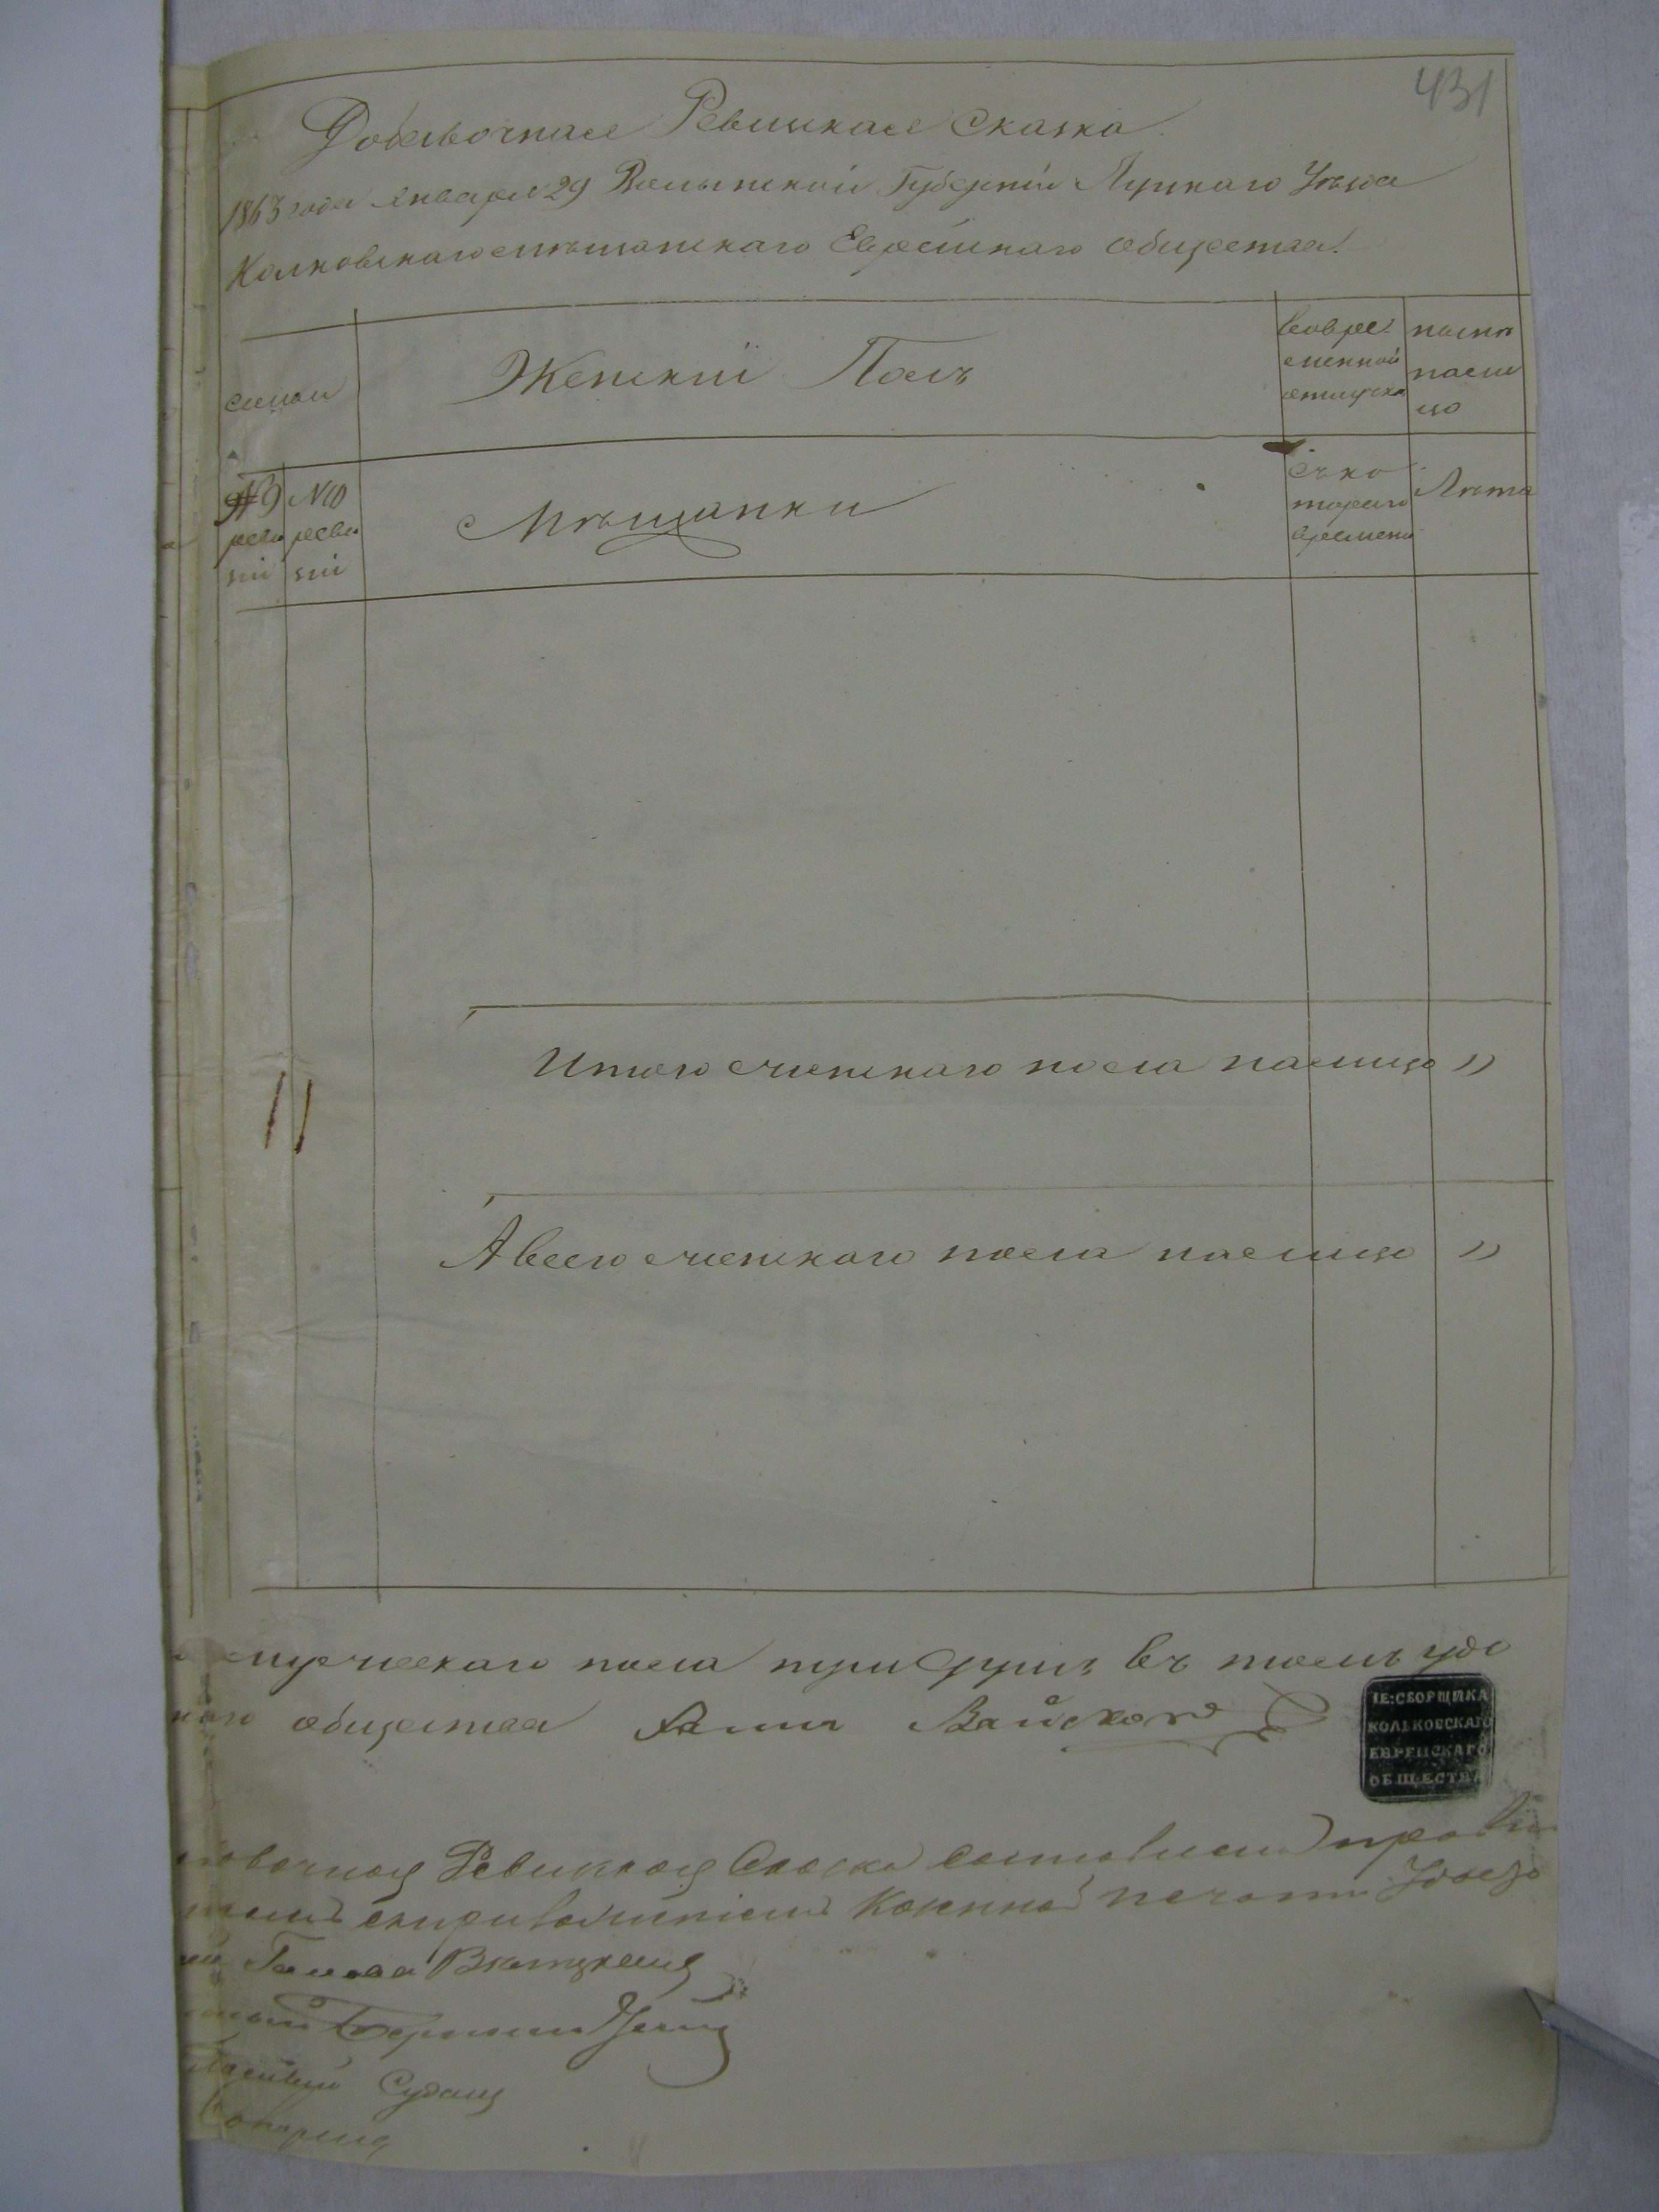 431
Добавочная Ревизкая Сказка.
1863 года Января 29 Волынской Губерніи Луцкаго Уезда
Колковскаго мѣщанскаго Еврейскаго общества.
семьи
Женскій Полъ
во вре
менной
отлучкѣ
ныне
на ли
цо
№9
реви
зіи
№10
реви
зіи
Мѣщанки
съ ко
тораго
времени
Лѣта
Итого женскаго пола налицо "
А всего женскаго пола налицо "
мужескаго пола три души въ томъ удо
наго общества
IE:СБОРЩИКА
КОЛЬКОВСКАГО
ЕВРЕЙСКАГО
ОБЩЕСТВА
Ревизкая Сказка составлена
Казенной печати Уезд
Голова